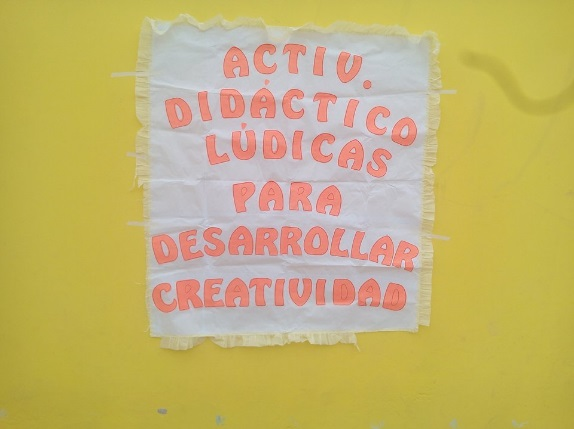 ACTIV.
DIDÁCTICO
LÚDICAS
PARA
DESARROLLAR
CREATIVIDAD